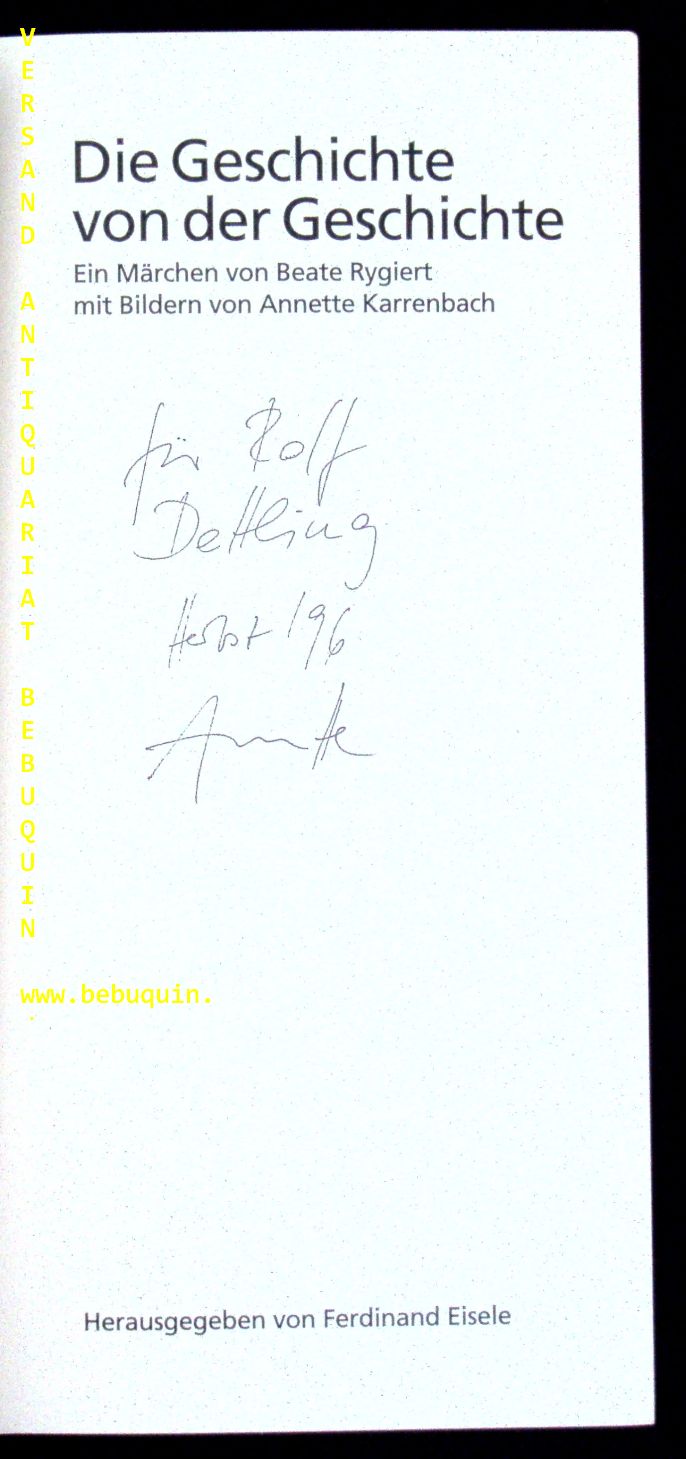 Die Geschichte
von der Geschichte
Ein Märchen von Beate Rygiert
mit Bildern von Annette Karrenbach
für Rolf
Dettling
Herbst '96
Annette
Herausgegeben von Ferdinand Eisele
VERSAND ANTIQUARIAT BEBUQUIN
www.bebuquin.